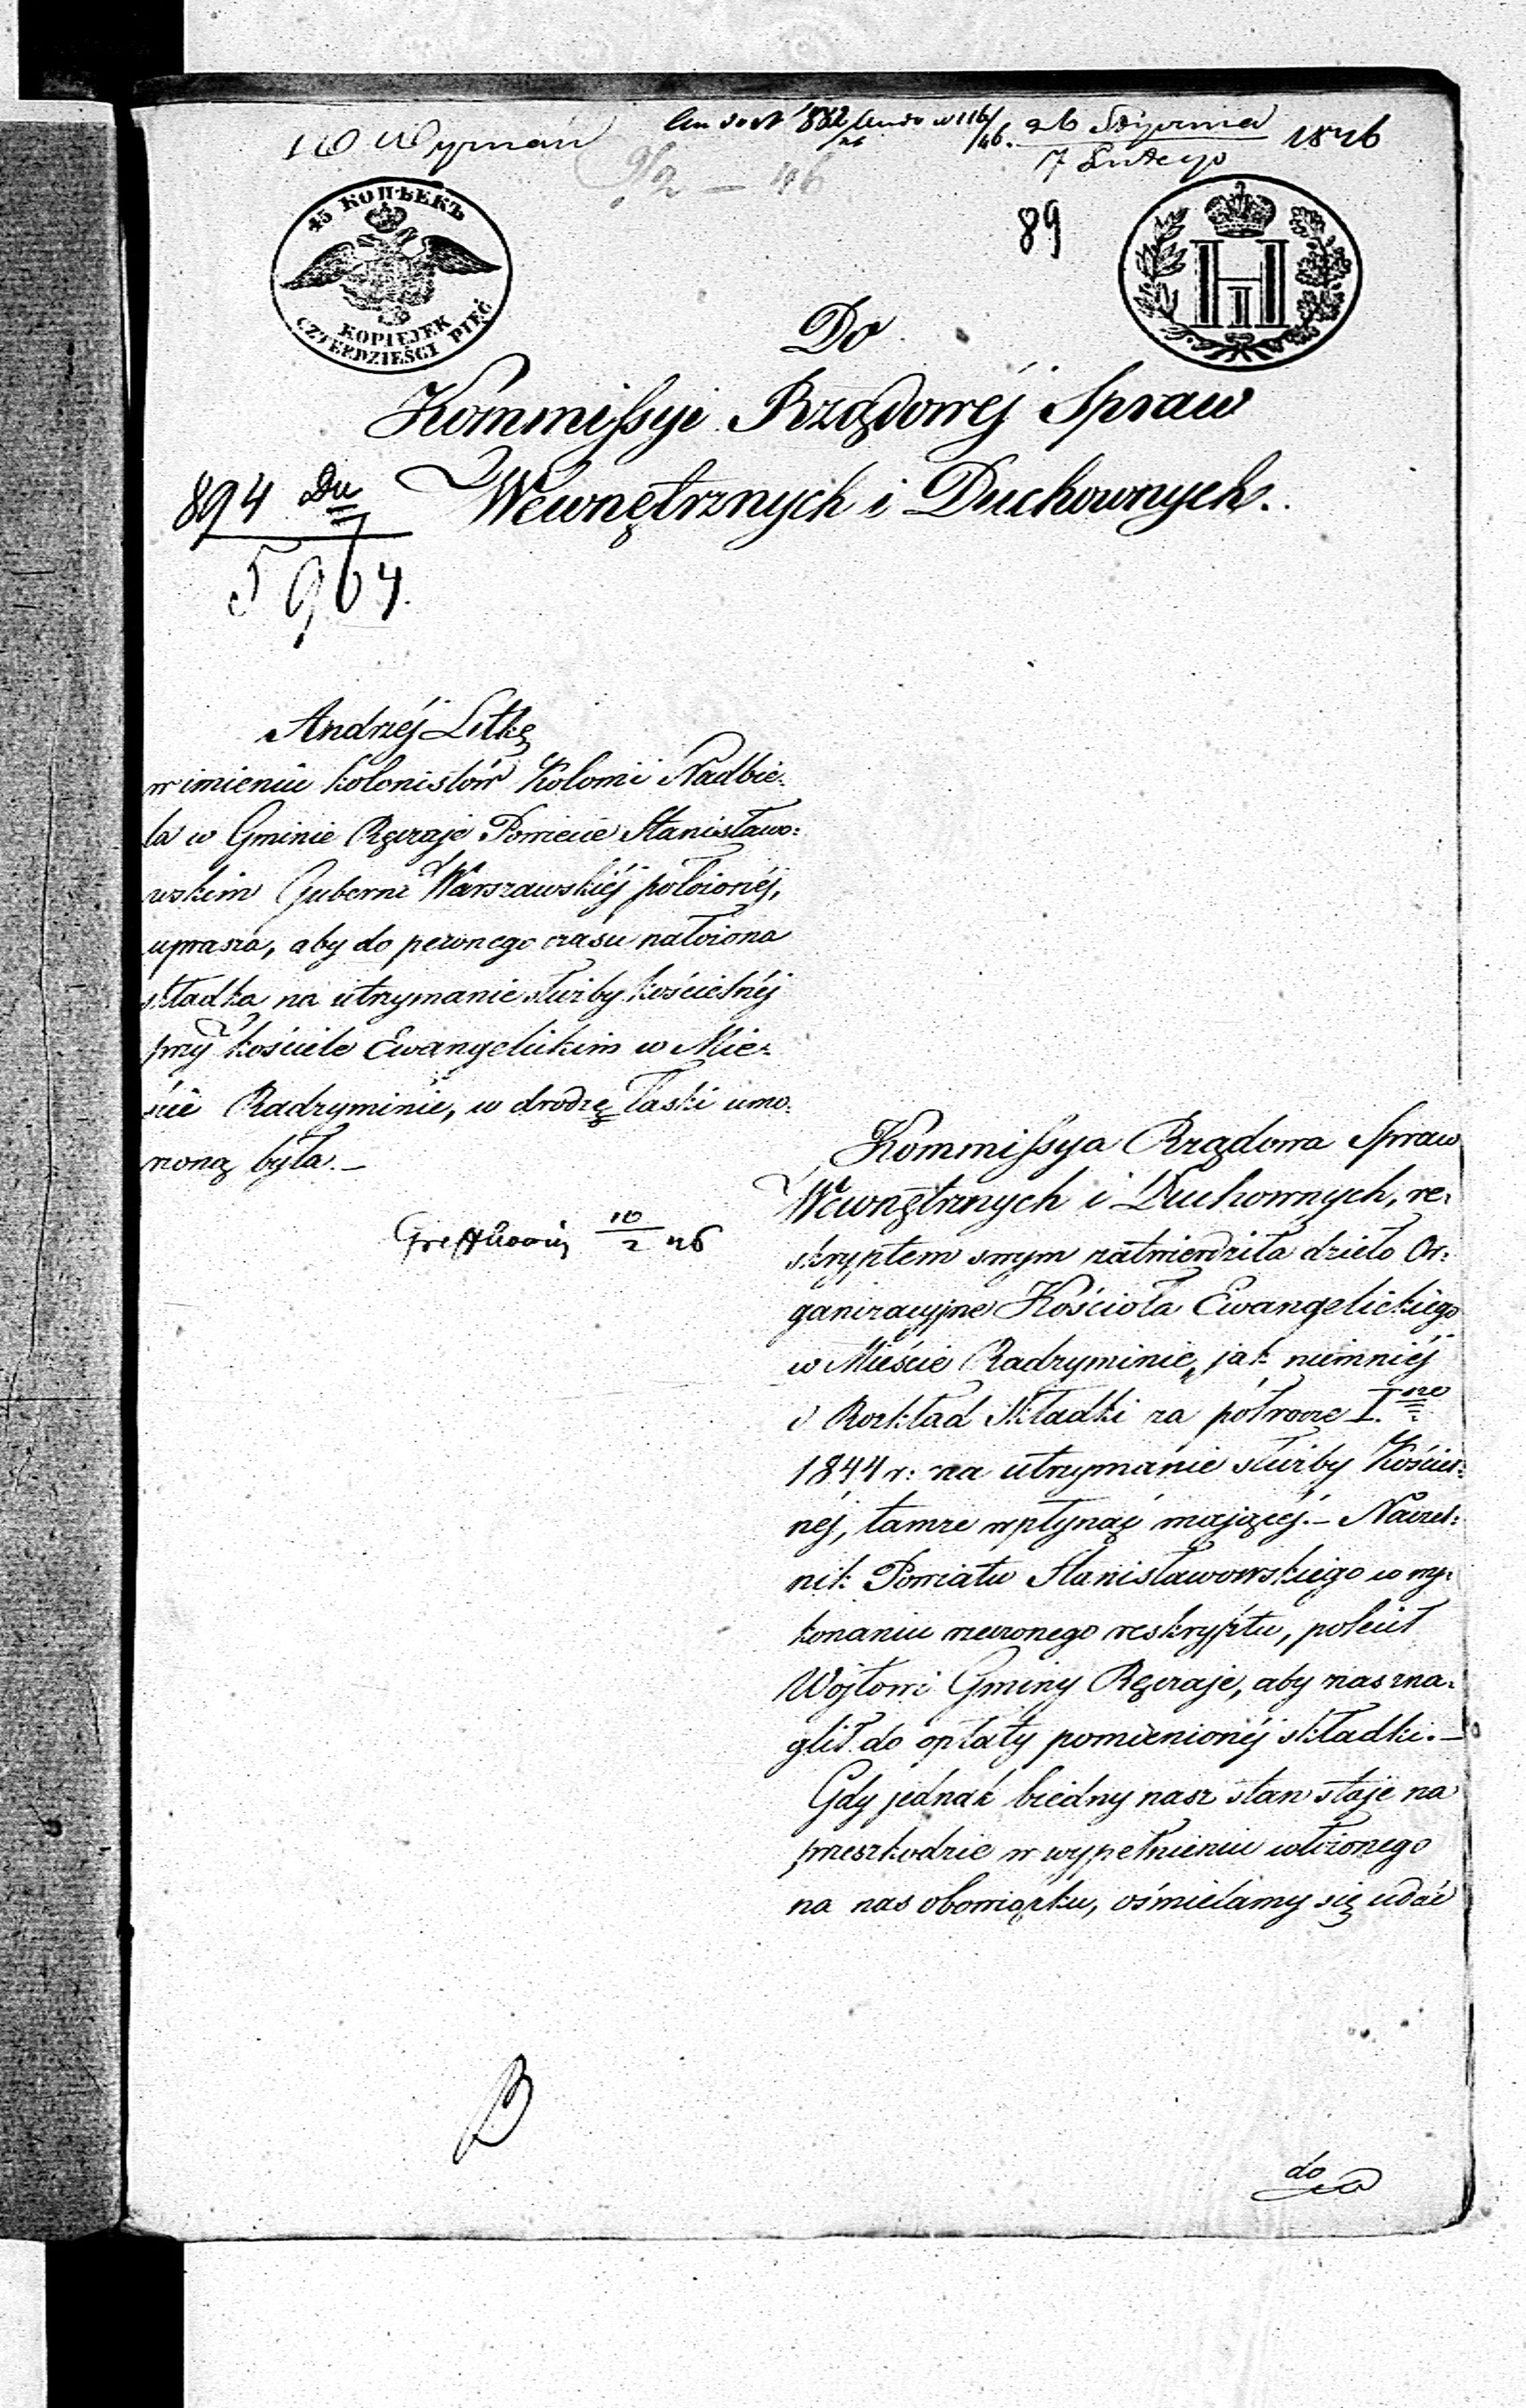 W Wyznań
26 Stycznia 1846
7 Lutego
9/2 - 46
89
45 КОПѢЕКЪ
KOPIEJEK
CZTERDZIEŚCI PIĘĆ
Do
Kommissyi Rządowéj Spraw
Wewnętrznych i Duchownych.
894 Du
5964.
Andrzéj Litke
w imieniu kolonistów Kolonii Nadbie-
la w Gminie Ręczaje Powiecie Stanisławo-
wskim Guberni Warszawskiéj położonéj,
uprasza, aby do pewnego czasu nałożona
składka na utrzymanie służby kościelnéj
przy kościele Ewangelickim w Mie-
ście Radzyminie, w drodze łaski umo-
rzoną była.-
10/2 46
Kommissya Rządowa Spraw
Wewnętrznych i Duchownych, re-
skryptem swym zatwierdziła dzieło Or-
ganizacyjne Kościoła Ewangelickiego
w Mieście Radzyminie, jak niemniéj
i Rozkład Składki za półrocze I.sze
1844 r: na utrzymanie służby Kościel-
néj, tamże wpłynąć mającéj.- Naczel-
nik Powiatu Stanisławowskiego w wy-
konaniu rzeczonego reskryptu, polecił
Wójtowi Gminy Ręczaje, aby nas zna-
glił do opłaty pomienionéj składki.-
Gdy jednak biedny nasz stan staje na
przeszkodzie w wypełnieniu włożonego
na nas obowiązku, ośmielamy się udać
do